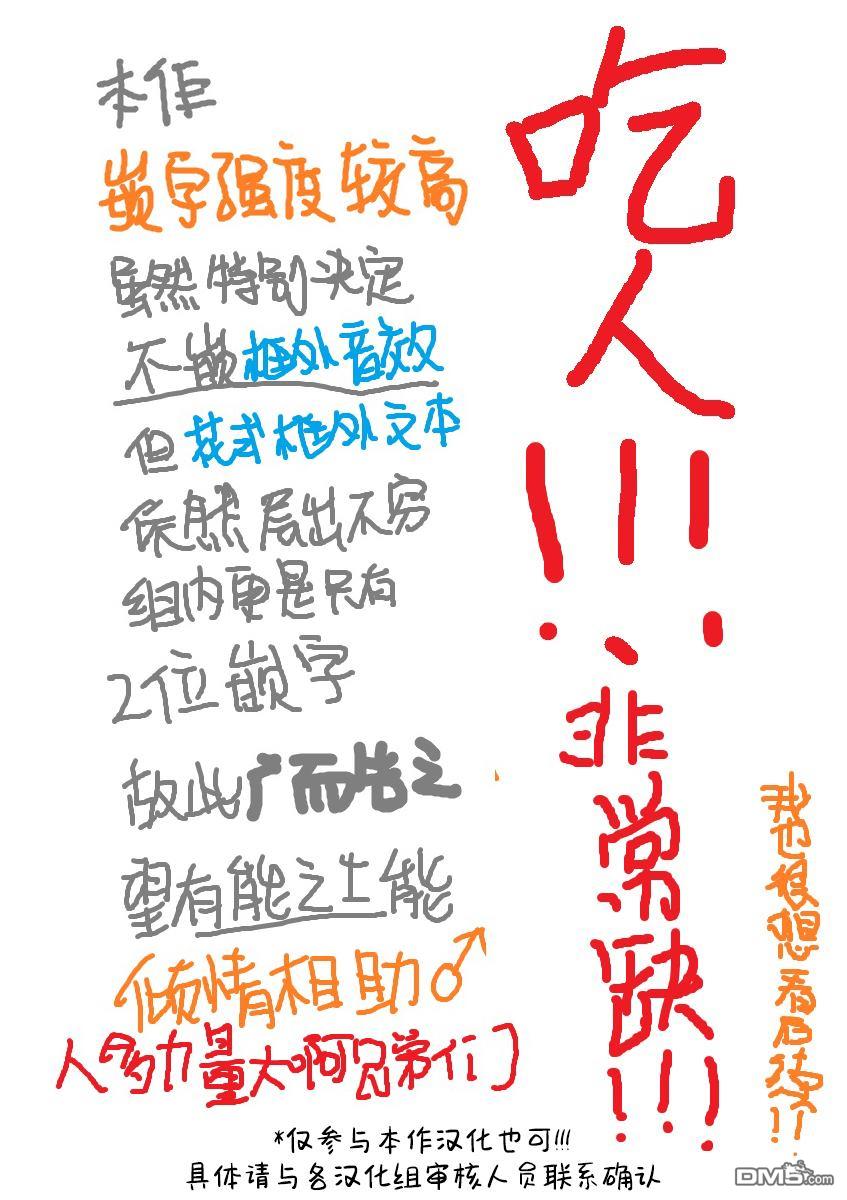 本作
嵌字强度较高
虽然特别决定
不嵌框外音效
但花式框外文本
依然层出不穷
组内更是只有
2位嵌字
故此广而告之
望有能之士能
倾情相助♂
人多力量大啊兄弟们
吃人!!!、非常缺!!!
我也很想看后续!!
*仅参与本作汉化也可!!!
具体请与各汉化组审核人员联系确认
DM5.com